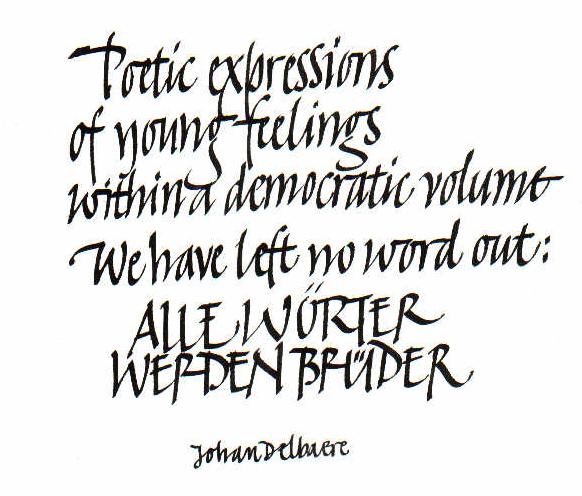 Poetic expressions
of young feelings
within a democratic volume
We have left no word out:
ALLE WÖRTER
WERDEN BRÜDER
Johan Delbaere